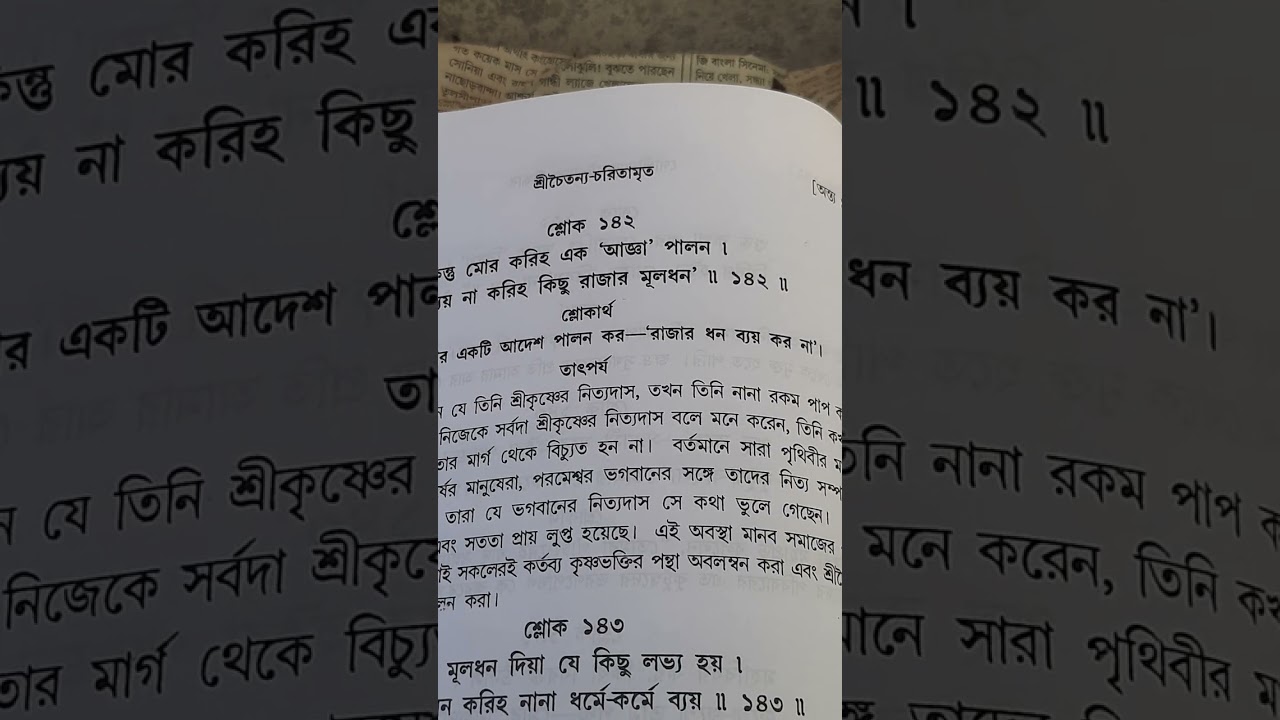 গত কয়েক মাস সে
সোনিয়া এবং
বুঝতে পারছেন
জি বাংলা সিনেমা,
শ্রীচৈতন্য-চরিতামৃত
[অন্ত্য
শ্লোক ১৪২
মোর করিহ এক 'আজ্ঞা' পালন ।
না করিহ কিছু রাজার মূলধন' ॥ ১৪২ ॥
শ্লোকার্থ
একটি আদেশ পালন কর—'রাজার ধন ব্যয় কর না'।
তাৎপর্য
যে তিনি শ্রীকৃষ্ণের নিত্যদাস, তখন তিনি নানা রকম পাপ
নিজেকে সর্বদা শ্রীকৃষ্ণের নিত্যদাস বলে মনে করেন, তিনি
তার মার্গ থেকে বিচ্যুত হন না। বর্তমানে সারা পৃথিবীর
মানুষেরা, পরমেশ্বর ভগবানের সঙ্গে তাদের নিত্য
তারা যে ভগবানের নিত্যদাস সে কথা ভুলে গেছেন।
সততা প্রায় লুপ্ত হয়েছে। এই অবস্থা মানব সমাজের
সকলেরই কর্তব্য কৃষ্ণভক্তির পন্থা অবলম্বন করা এবং
করা।
শ্লোক ১৪৩
মূলধন দিয়া যে কিছু লভ্য হয় ।
করিহ নানা ধর্মে-কর্মে ব্যয় ॥ ১৪৩ ॥